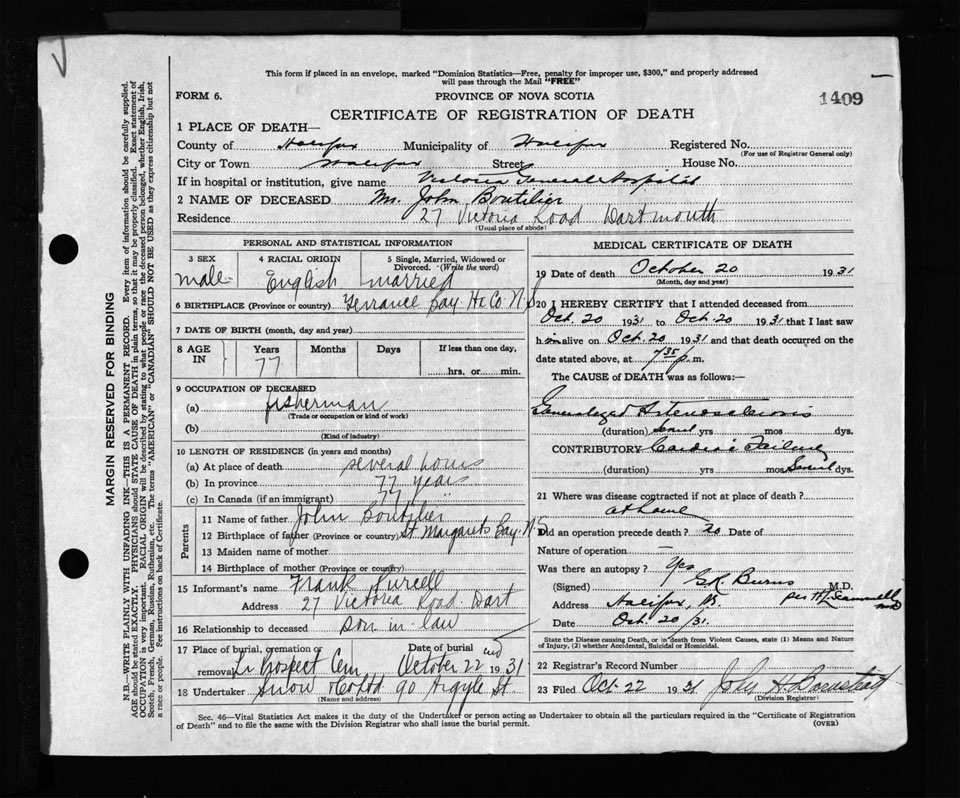 This form if placed in an envelope, marked "Dominion Statistics—Free, penalty for improper use, $300," and properly addressed
will pass through the Mail "FREE"
FORM 6.
PROVINCE OF NOVA SCOTIA
1409
CERTIFICATE OF REGISTRATION OF DEATH
MARGIN RESERVED FOR BINDING
N.B.—WRITE PLAINLY WITH UNFADING INK—THIS IS A PERMANENT RECORD. Every item of information should be carefully supplied.
AGE should be stated EXACTLY. PHYSICIANS should STATE CAUSE OF DEATH in plain terms, so that it may be properly classified. Exact statement of
OCCUPATION is very important. RACIAL ORIGIN will be described by stating to what people or race the deceased person belonged, whether English, Irish,
Scotch, French, German, Russian, Ruthenian, etc. The terms "AMERICAN" or "CANADIAN" SHOULD NOT BE USED as they express citizenship but not
a race or people. Fee instructions on back of Certificate.
1 PLACE OF DEATH—
County of Halifax Municipality of Halifax Registered No.
(For use of Registrar General only)
City or Town Halifax Street House No.
If in hospital or institution, give name Victoria General Hospital
2 NAME OF DECEASED Mr. John Boutilier
Residence 27 Victoria Road Dartmouth
(Usual place of abode)
PERSONAL AND STATISTICAL INFORMATION
3 SEX
male
4 RACIAL ORIGIN
English
5 Single, Married, Widowed or
Divorced. (Write the word)
married
6 BIRTHPLACE (Province or country) Terrance Bay Hx Co N.S.
7 DATE OF BIRTH (month, day and year)
8 AGE
IN
Years
77
Months
Days
If less than one day,
hrs. or min.
9 OCCUPATION OF DECEASED
(a) fisherman
(Trade or occupation or kind of work)
(b)
(Kind of industry)
10 LENGTH OF RESIDENCE (in years and months)
(a) At place of death several hours
(b) In province 77 years
(c) In Canada (if an immigrant) 77 "
Parents
11 Name of father John Boutilier
12 Birthplace of father (Province or country) St Margarets Bay. N.S.
13 Maiden name of mother
14 Birthplace of mother (Province or country)
15 Informant's name Frank Purcell
Address 27 Victoria Road. Dart
16 Relationship to deceased Son in law
17 Place of burial, cremation or Date of burial
removal Prospect Cem October 22 1931
18 Undertaker Snow & Co Ltd 90 Argyle St.
(Name and address)
MEDICAL CERTIFICATE OF DEATH
19 Date of death October 20 1931
(Month, day and year)
20 I HEREBY CERTIFY that I attended deceased from
Oct. 20 1931 to Oct. 20 1931 that I last saw
him alive on Oct. 20 1931 and that death occurred on the
date stated above, at 7.35 p.m.
The CAUSE of DEATH was as follows:
Generalized Arteriosclerosis
(duration) yrs mos. dys.
CONTRIBUTORY Cardiac Failure
(duration) yrs. mos dys.
21 Where was disease contracted if not at place of death?
at home
Did an operation precede death? no Date of
Nature of operation
Was there an autopsy? Yes
(Signed) G.R. Burns M.D.
Address Halifax, N.S.
Date Oct. 20/31.
State the Disease causing Death, or in death from Violent Causes, state (1) Means and Nature
of Injury, (2) whether Accidental, Suicidal or Homicidal.
22 Registrar's Record Number
23 Filed Oct-22 1931 John H.
(Division Registrar)
Sec. 46—Vital Statistics Act makes it the duty of the Undertaker or person acting as Undertaker to obtain all the particulars required in the "Certificate of Registration
of Death" and to file the same with the Division Registrar who shall issue the burial permit.
(OVER)